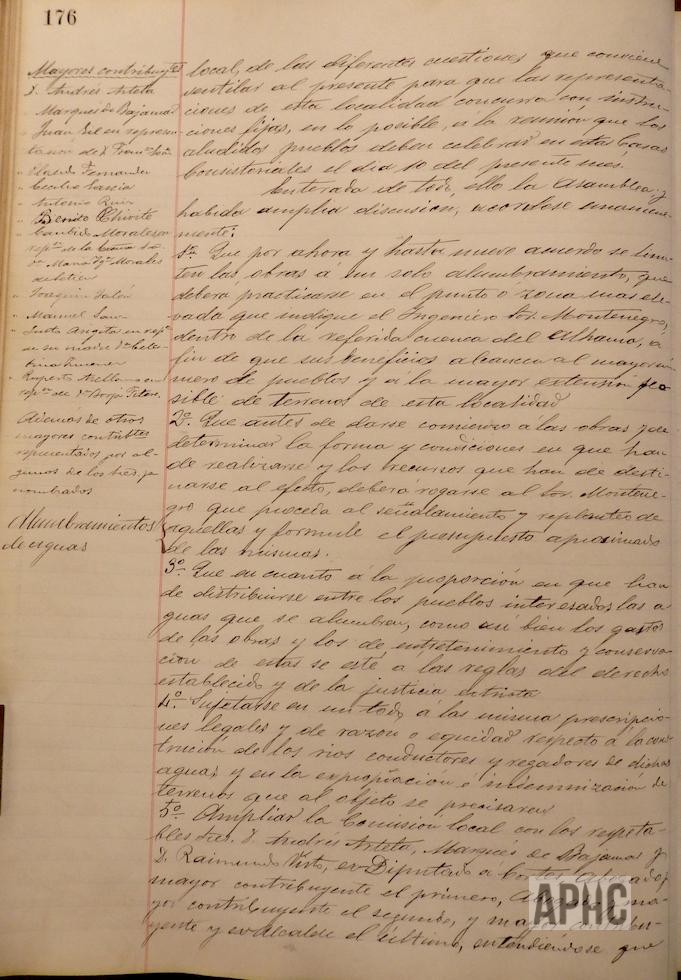 176
Mayores contribuytes
D. Andrés Arteta
Marques de Bajamar
Juan Gil en represen
tación de D. Franco
" Eladio Fernandez
" Cecilio Garcia
" Antonio Ruiz
" Benito Chivite
" Candido Morales en
repon de la
Morales
" Joaquin
" Manuel
" Justo Argota en repon
de su madre Da Cele
" Ruperto Arellano en
repon de Da Borja
Además de otros
mayores contribtes
representados por al-
gunos de los tres ya
nombrados
Alumbramientos
de aguas
local, de las diferentes cuestiones que conviene
ventilar al presente para que las representa
ciones de esta localidad concurra con instruc-
ciones fijas, en lo posible, a la reunion que los
aludidos pueblos deben celebrar en estas Casas
Consistoriales el dia 10 del presente mes.
Enterada de todo ello la Asamblea, y
habida amplia discusion, acordose unanime-
mente:
1º. Que por ahora y hasta nuevo acuerdo se limi-
ten las obras a un solo alumbramiento, que
deberá practicarse en el punto o zona mas ele-
vada que indique el Ingeniero Sor. Montenegro,
dentro de la referida cuenca del Alhama, a
fin de que sus beneficios alcancen al mayor nú
mero de pueblos y á la mayor extension po
sible de terrenos de esta localidad
2º. Que antes de darse comienzo a las obras y de
determinar la forma y condiciones en que han
de realizarse y los recursos que han de desti-
narse al efecto, deberá rogarse al Sor. Montene-
gro que proceda al señalamiento y replanteo de
aquellas y formule el presupuesto aproximado
de las mismas.
3º. Que en cuanto á la proporción en que han
de distribuirse entre los pueblos interesados las a
guas que se alumbran, como asi bien los gastos
de las obras y los de entretenimiento y conserva-
cion de estas se esté a las reglas del derecho
establecido y de la justicia estricta
4º. Sujetarse en un todo á las misma prescripcio-
nes legales y de razon o equidad respecto á la cons
trucion de los rios conductores y regadores de dichas
aguas y en la expropiación é indemnización de
terrenos que al objeto se precisaren
5º. Ampliar la Comisión local con los respeta-
bles Sres. D. Andrés Arteta, Marqués de Bajamar y
D. Raimundo Virto, ex-Diputado a Cortes, Abogado y
mayor contribuyente el primero, Abogado y ma-
yor contribuyente el segundo, y mayor contribu-
yente y ex-Alcalde el último, entendiendose que
APHC